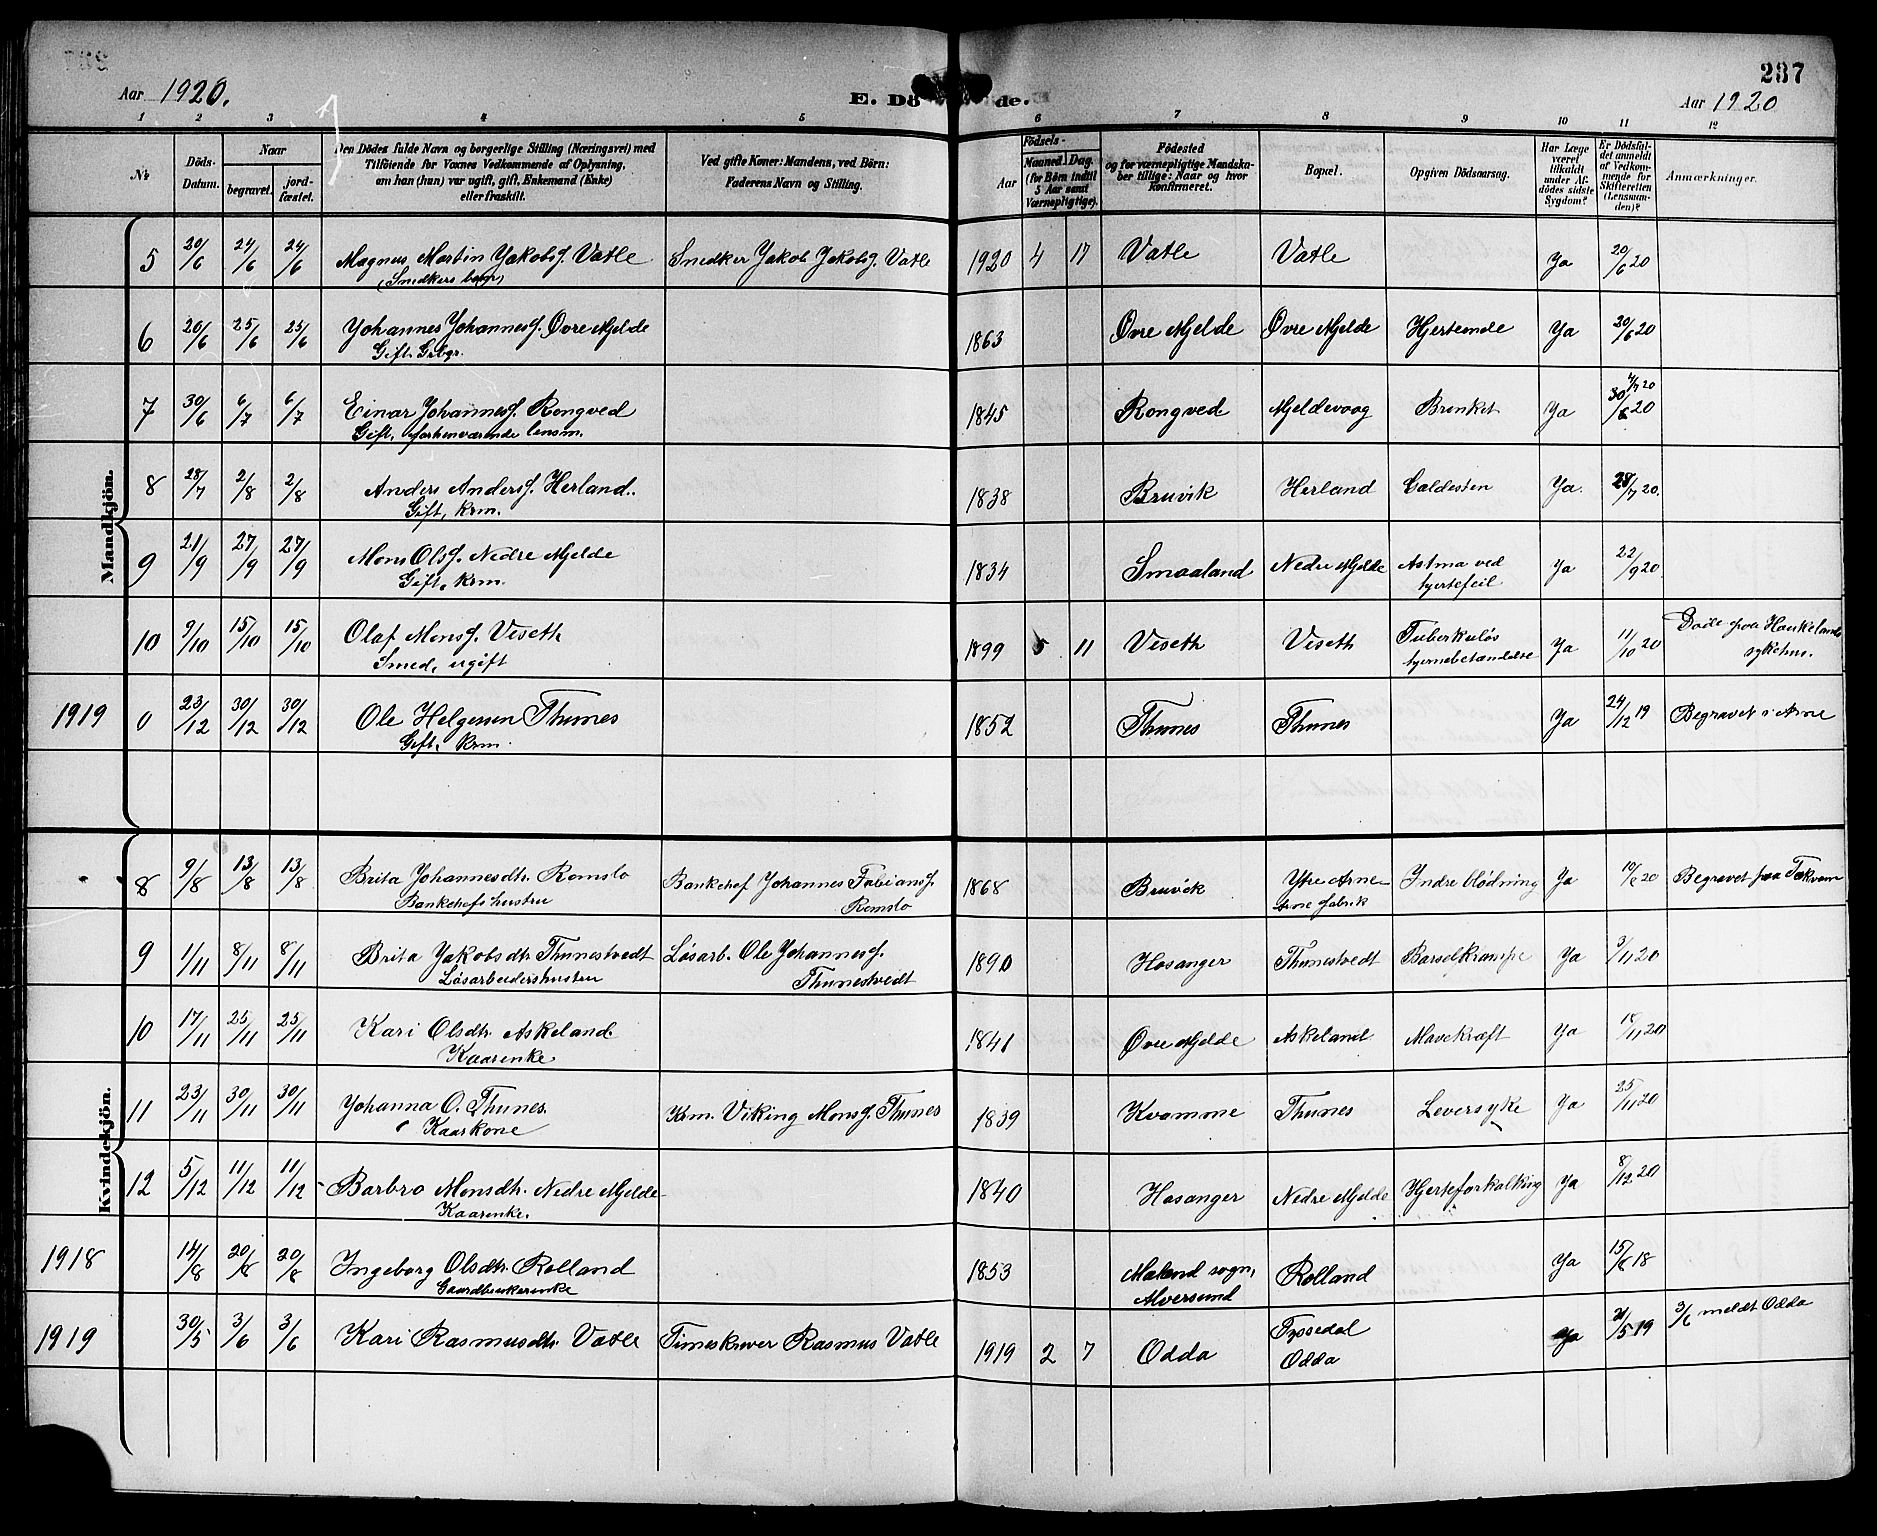 237
Aar 1920. E. Dö de. Aar 1920
1 2 3 4 5 6 7 8 9 10 11 12
No. Döds-Datum. Naar begravet. jord-fæstet. Den Dödes fulde Navn og borgerlige Stilling (Næringsvei) med Tilföiende for Voxnes Vedkommende af Oplysning, om han (hun) var ugift, gift, Enkemand (Enke) eller fraskilt. Ved gifte Koner: Mandens, ved Börn: Faderens Navn og Stilling. Födsels- Aar Maaned. Dag. (for Börn indtil 5 Aar samt Værnepligtige). Födested og for værnepligtige Mandskaber tillige: Naar og hvor Konfirmeret. Bopæl. Opgiven Dödsaarsag. Har Læge været tilkaldt under Afdödes sidste Sygdom? Er Dödsfaldet anmeldt af Vedkommende for Skifteretten (Lensmanden)? Anmærkninger.
Mandkjön.
5 20/6 24/6 24/6 Magnus Martin Jakobsf. Vatle Snedker Jakob Jakobsf. Vatle 1920 4 17 Vatle Vatle Ja 20/6 20
(Snedkers barn)
6 20/6 25/6 25/6 Johannes Johannesf. Øvre Mjelde 1863 Øvre Mjelde Øvre Mjelde Hjerteinde Ja 20/6 20
Gift. Grbgr.
7 30/6 6/7 6/7 Einar Johannesf. Rongved 1845 Rongved Mjeldevaag Bronket Ja 30/6 20 4/7 20
Gift, forhenværende lensm.
8 28/7 2/8 2/8 Anders Andersf. Herland. 1838 Bruvik Herland Galdesten Ja. 28/7 20.
Gift, krm.
9 21/9 27/9 27/9 Mons Olsf. Nedre Mjelde 1834 Smaaland Nedre Mjelde Astma ved hjertefeil Ja 22/9 20
Gift, krm.
10 9/10 15/10 15/10 Olaf Monsf. Viseth 1899 5 11 Viseth Viseth Tuberkuløs hjernebetændelse Ja 11/10 20 Døde paa Haukelands sykehus.
Smed, ugift
1919 0 23/12 30/12 30/12 Ole Helgesen Thunes 1852 Thunes Thunes Ja 24/12 19 Begravet i Arne
Gift, krm.
Kvindekjön.
8 9/8 13/8 13/8 Brita Johannesdtr. Romslo Bankchef Johannes Fabiansf. Romslo 1868 Bruvik Ytre Arne Arne fabrik Indre blødning Ja 10/8 20 Begravet paa Takvam
Bankchefs hustru
9 1/11 8/11 8/11 Brita Jakobsdtr. Thunestvedt Løsarb. Ole Johannesf. Thunestvedt 1890 Hosanger Thunestvedt Barselkrampe Ja 3/11 20
Løsarbeidershustru
10 17/11 25/11 25/11 Kari Olsdtr. Askeland 1841 Øvre Mjelde Askeland Mavekræft Ja 18/11 20
Kaarenke
11 23/11 30/11 30/11 Johanna O. Thunes. Krm. Viking Monsf. Thunes 1839 Kvamme Thunes Leversyke Ja 25/11 20
Kaarkone
12 5/12 11/12 11/12 Barbro Monsdtr. Nedre Mjelde 1840 Hosanger Nedre Mjelde Hjerteforkalkning Ja 8/12 20
Kaarenke.
1918 14/8 20/8 20/8 Ingeborg Olsdtr. Rolland 1853 sogn, Alversund Rolland Ja 15/8 18
Gaardbrukerenke
1919 30/5 3/6 3/6 Kari Rasmusdtr. Vatle Timeskriver Rasmus Vatle 1919 2 7 Odda Tyssedal Odda Ja 31/5 19 3/6 meldt Odda